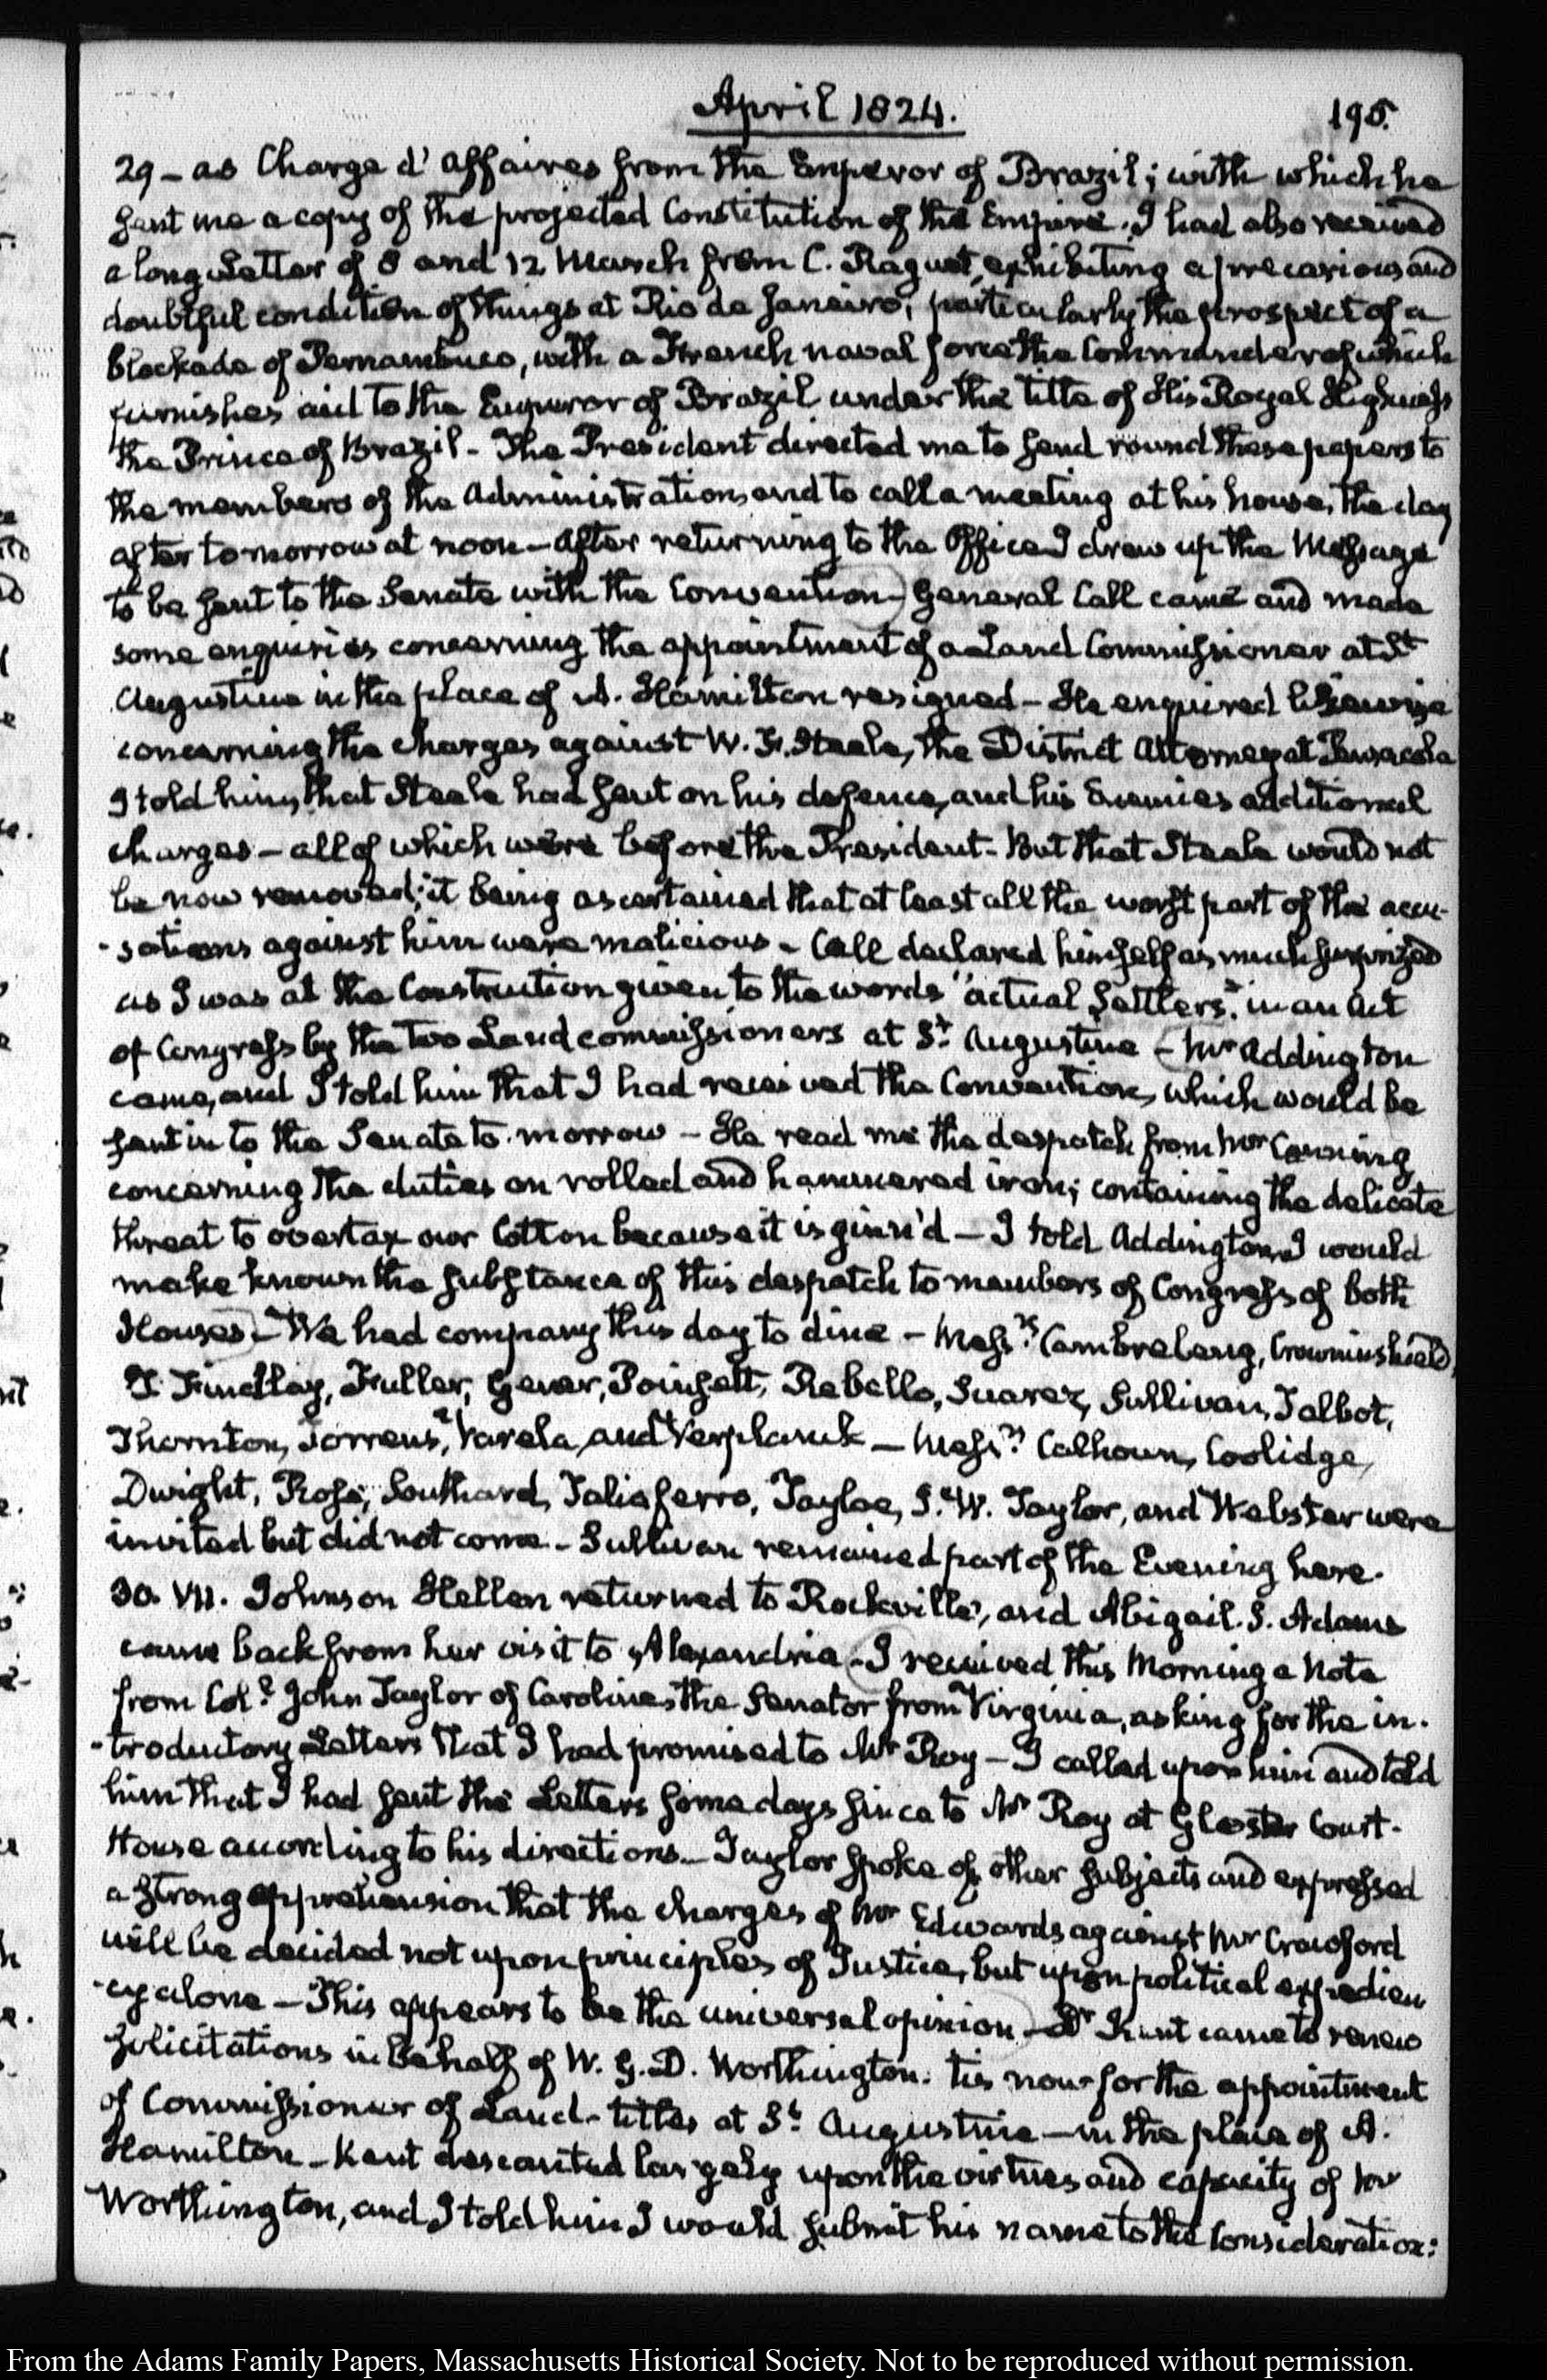 April 1824.
195.
29 - as Charge d' Affaires from the Emperor of Brazil; with which he
sent me a copy of the projected Constitution of the Empire. I had also received
a long Letter of 8 and 12 March from C. Raguet, exhibiting a precarious and
doubtful condition of things at Rio de Janeiro; particularly the prospect of a
blockade of Pernambuco, with a French naval force the Commander of which
furnishes aid to the Emperor of Brazil under the title of His Royal Highness
the Prince of Brazil - The President directed me to send round these papers to
the members of the Administration, and to call a meeting at his house, the day
after tomorrow at noon - After returning to the Office I drew up the Message
to be sent to the Senate with the Convention - General Call came and made
some enquiries concerning the appointment of a Land Commissioner at St
Augustine in the place of A. Hamilton resigned - He enquired likewise
concerning the charges against W. F. Steele, the District Attorney at Pensacola
I told him, that Steele had sent on his defence, and his Enemies additional
charges - all of which were before the President - But that Steele would not
be now removed; it being ascertained that at least all the worst part of the accu-
-sations against him were malicious - Call declared himself as much surprized
as I was at the Construction given to the words "actual settlers" in an Act
of Congress by the two Land commissioners at St. Augustine - Mr Addington
came, and I told him that I had received the Convention, which would be
sent in to the Senate to-morrow - He read me the despatch from Mr Canning
concerning the duties on rolled and hammered iron; containing the delicate
threat to overtax our Cotton because it is ginn'd - I told Addington, I would
make known the substance of this despatch to members of Congress of both
Houses - We had company this day to dine - Messrs. Cambreleng, Crowninshield,
J. Findlay, Fuller, Gever, Poinsett, Rebello, Suarez, Sullivan, Talbot,
Thornton, Torrens, Varela, and Verplanck - Messrs. Calhoun, Coolidge,
Dwight, Ross, Southard, Taliaferro, Tayloe, J. W. Taylor, and Webster were
invited but did not come - Sullivan remained part of the Evening here.
30. VII. Johnson Hellen returned to Rockville, and Abigail. S. Adams
came back from her visit to Alexandria - I received this Morning a Note
from Coll. John Taylor of Caroline, the Senator from Virginia, asking for the in-
-troductory Letters that I had promised to Mr Roy - I called upon him and told
him that I had sent the Letters some days since to Mr Roy at Gloster Court-
House according to his directions - Taylor spoke of other subjects and expressed
a strong apprehension that the charges of Mr Edwards against Mr Crawford
will be decided not upon principles of Justice, but upon political expedien
-cy alone - This appears to be the universal opinion - Dr Kent came to renew
solicitations in behalf of W. G. D. Worthington. tis now for the appointment
of Commissioner of Land-titles at St. Augustine - in the place of A.
Hamilton - Kent descanted largely upon the virtues and capacity of Mr
Worthington, and I told him I would submit his name to the Consideration:
From the Adams Family Papers, Massachusetts Historical Society. Not to be reproduced without permission.